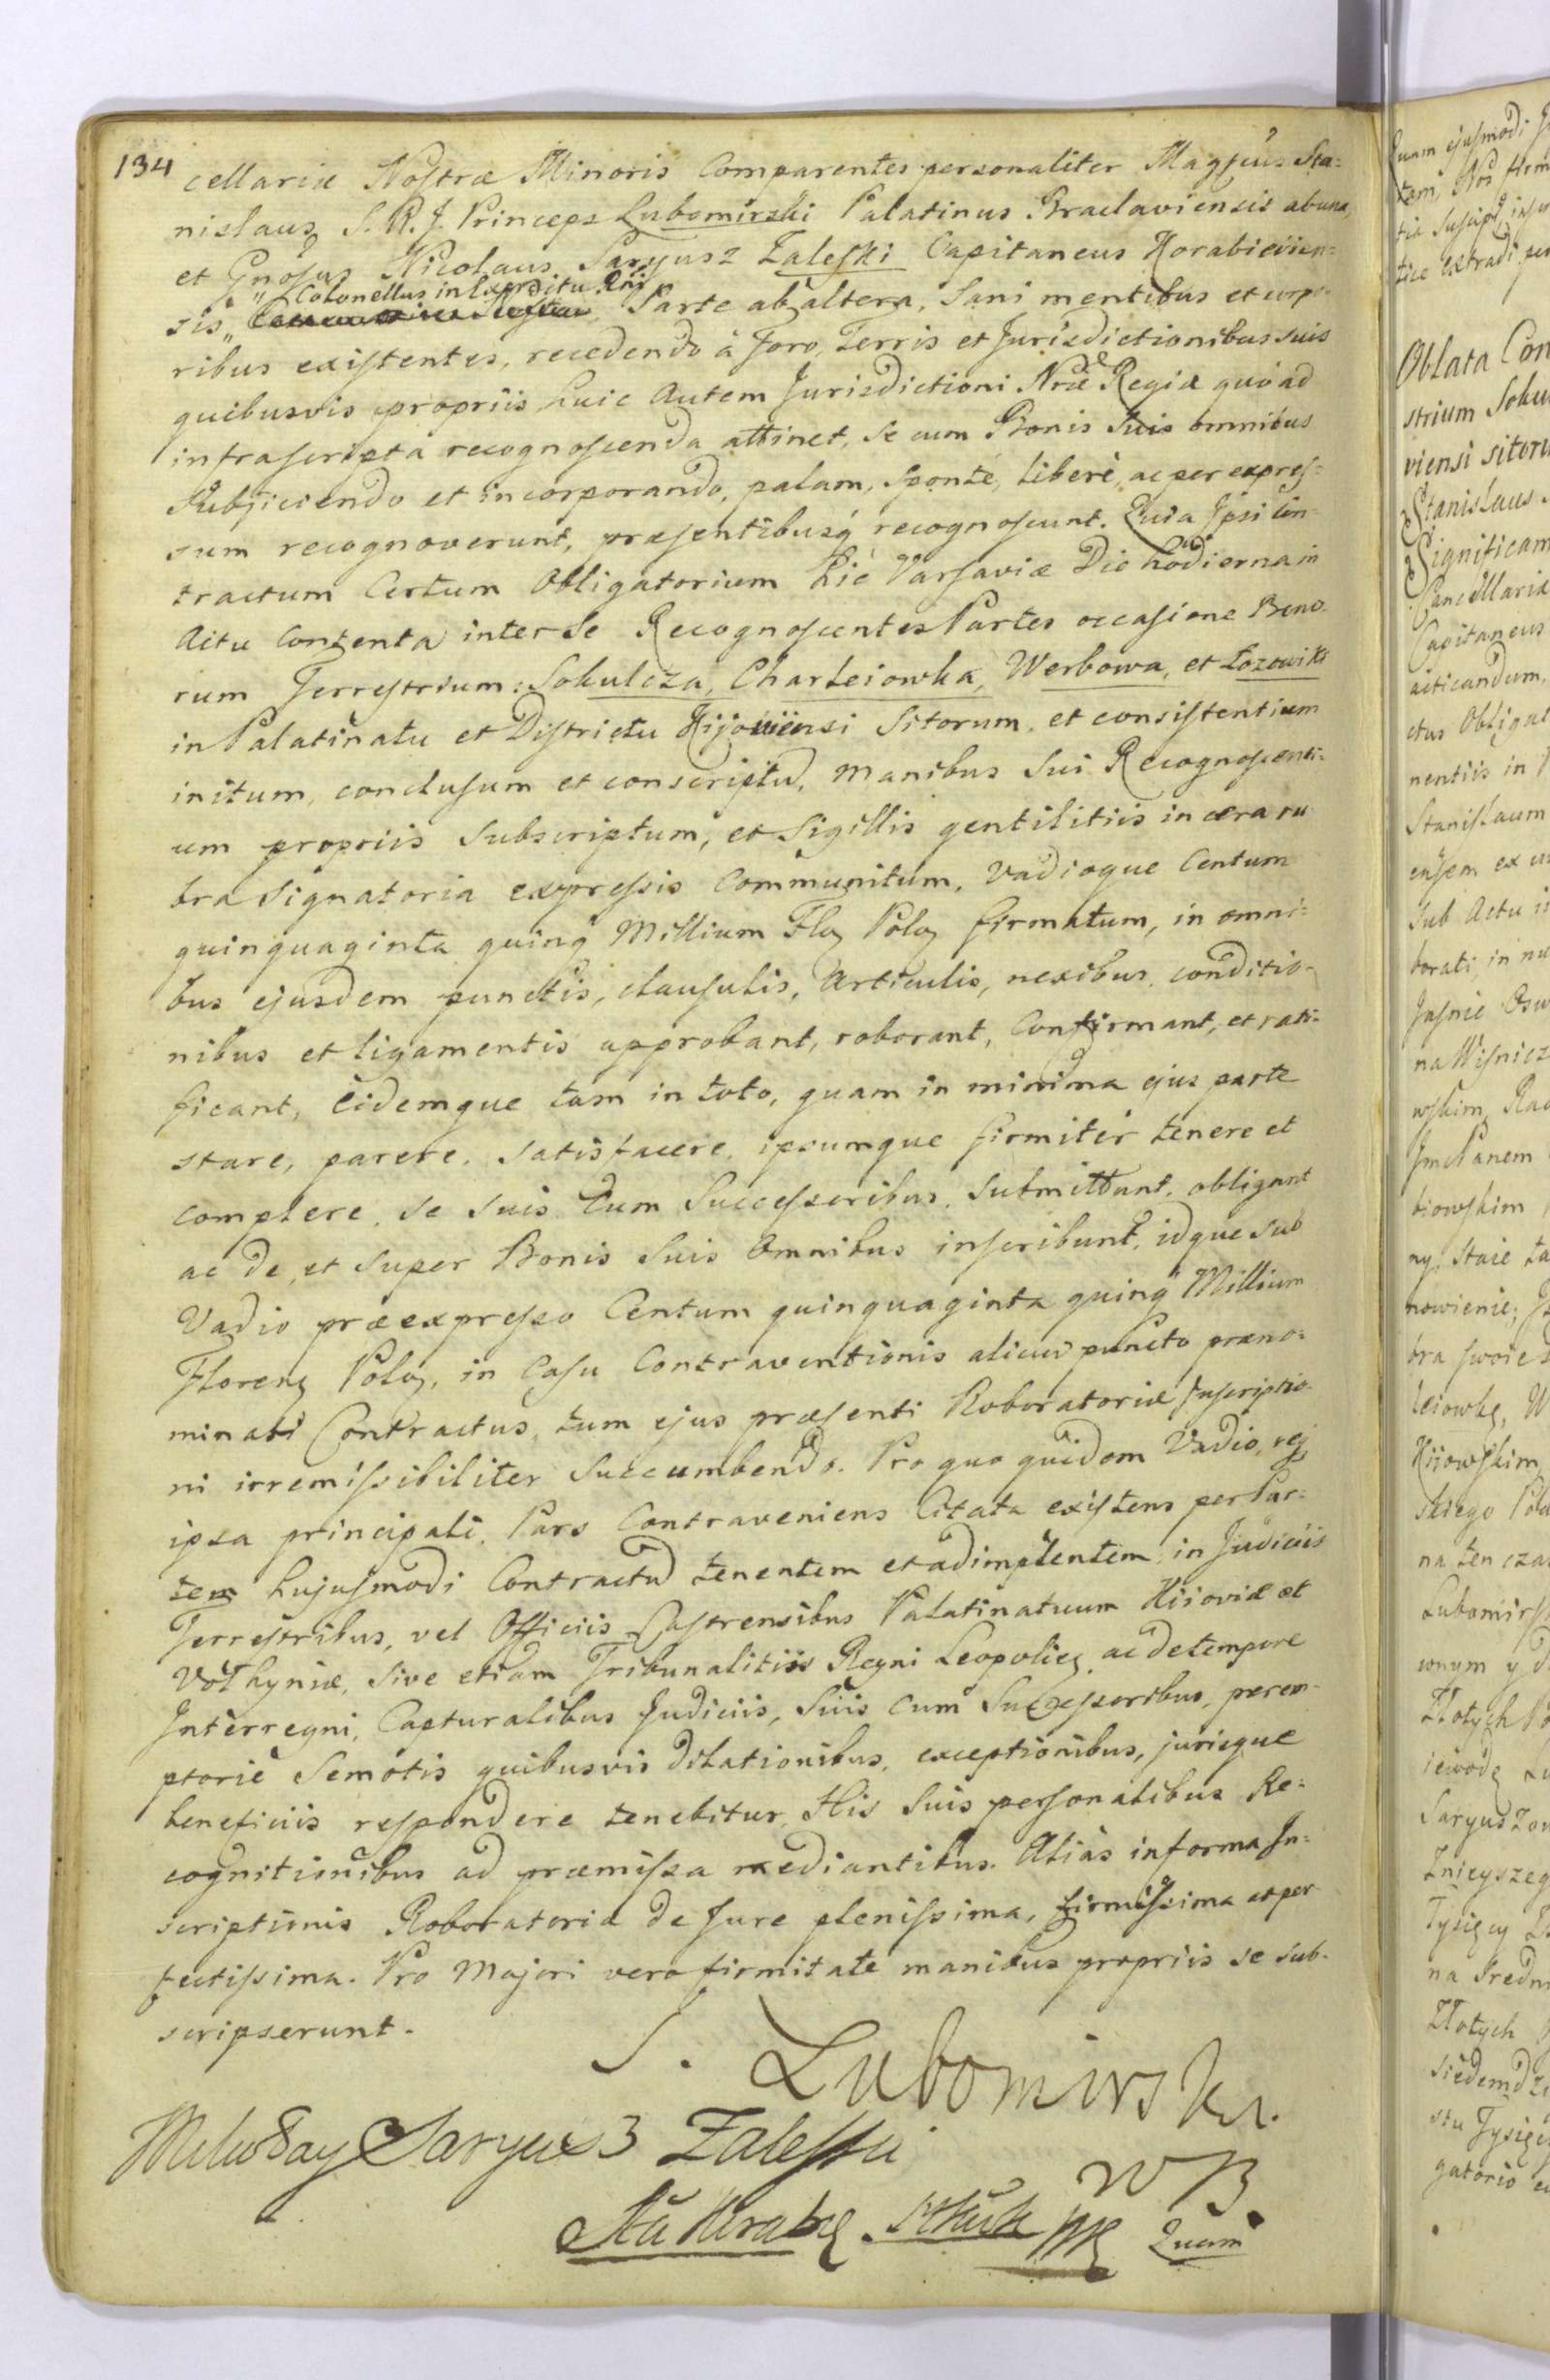 134
cellariæ Nostræ Minoris Comparentes personaliter Magfcus Sta=
nislaus S. R. J. Princeps Lubomirski Palatinus Braclaviensis ab una,
et Gnosus Nicolaus Saryusz Zaleski Capitaneus Horabieviien=
Colonellus in Exercitu Rni
sis, Parte ab altera, Sani mentibus et corpo=
ribus existentes, recedendo à Foro, Terris et Jurisdictionibus suis
quibusvis propriis huic autem Jurisdictioni Nræ Regiæ quo ad
infrascripta recognoscenda attinet, se cum Bonis Suis omnibus
Subjiciendo et incorporando, palam, sponte, libere, ac per expres=
sum recognoverunt, præsentibusq recognoscunt. Quia Ipsi Con=
tractum Certum Obligatorium hic Varsaviæ Die hodierna in
Actu Contenta inter Se Recognoscentes Partes occasione Bono=
rum Terrestrium: Sokulcza, Charleiowka, Werbowa, et Łozowiki
in Palatinatu et Districtu Kijoviensi Sitorum, et consistentium
initum, conclusum et conscriptu, manibus Sui Recognoscenti=
um propriis Subscriptum, et Sigillis gentilitiis in cera ru
bra Signatoria expressis Communitum, Vadioque Centum
quinquaginta quinq Millium Flo Polo firmatum, in omni=
bus ejusdem punctis, clausulis, Articulis, nexibus, conditio-
nibus et ligamentis approbant, roborant, Confirmant, et rati=
ficant, Eidemque tam in toto, quam in minima ejus parte
stare, parere, satisfacere, ipsumque firmiter tenere et
complere, se suis cum Successoribus, submittunt, obligant
ac de, et super Bonis Suis Omnibus inscribunt, idque sub
Vadio præexpresso Centum quinquaginta quinq Millium
Floren Polo, in Casu Contraventionis alicui puncto præno=
minati Contractus, tum ejus præsenti Roboratoriæ Inscriptio-
ni irremissibiliter Succumbendo. Pro quo quidem Vadio, rej
ipsa principali, Pars Contraveniens Citata existens per Par=
tem hujusmodi Contractu tenentem et adimplentem, in Judiciis
Terrestribus, vel Officiis Castrensibus Palatinatuum Kijoviæ et
Volhyniæ, sive etiam Tribunalitiis Regni Leopolien, ac de tempore
Interregni, Capturalibus Judiciis, Suis cum Successoribus, perem-
ptorie Semotis quibusvis dilationibus, exceptionibus, jurisque
beneficiis respondere tenebitur, His Suis personalibus Re=
cognitionibus ad præmissa mediantibus. Alias in forma In=
scriptionis Roboratoriæ de Jure plenissima, firmissima et per-
fectissima. Pro Majori vero firmitate manibus propriis se sub-
scripserunt.
S. Lubomirski
WB.
Mikołay Saryusz Zaleski
Quam
Quam ejusmodi
Oblata Con
strium Soku
viensi sitoru
Stanislaus
Significam
Cancellariæ
Capitaneus
acticandum,
ctus Obligat
nentiis in
Stanislaum
ensem ex
sub Actu
borati, in
Jasnie Osw
na Wisnicz
wskim, Rac
Jmc Panem
biowskim
ny, Staie
nowienie;
bra swoie
leiowkę, W
Kiiowskim,
skiego Pola
na ten czas
Lubomirs
wnym y
Złotych Po
iewodę Lu
Saryusz
Znieyszeg
Tysięcy
na Sredni
Złotych
siedemdz
stu Tysięcy
gatorio